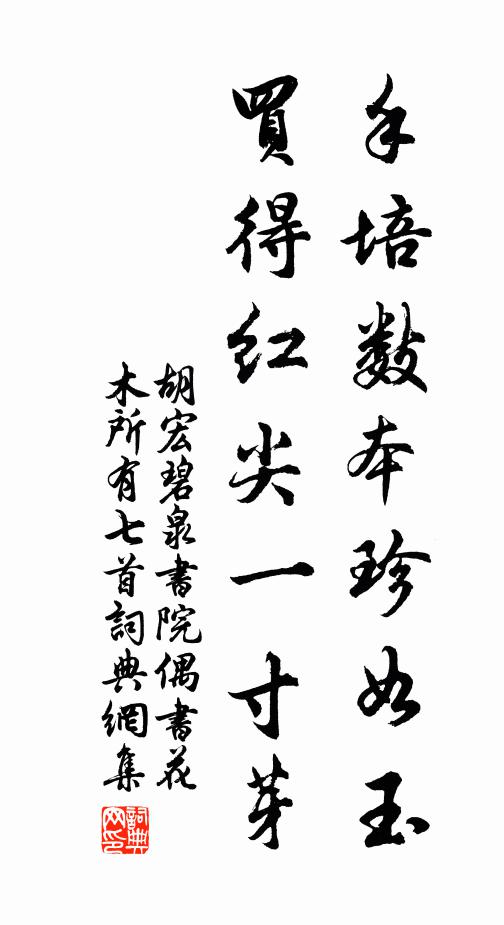 手培數本珍如玉
買得紅尖一寸芽
胡宏碧泉書院偶書花
木所有七首詞典網集
詞典網印